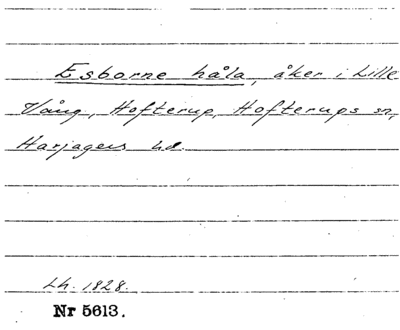 Esborne håla, åker i Lille
Vång, Hofterup, Hofterups sn,
Harjagers hd.
Lh. 1828.
Nr 5613.